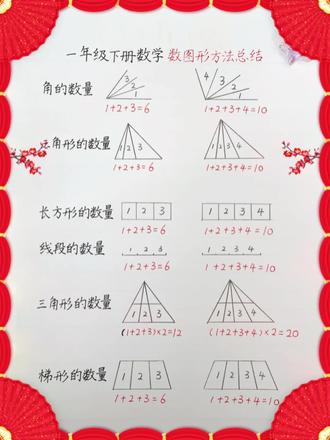 一年级下册数学 数图形方法总结
角的数量
1 2 3
1+2+3=6
1 2 3 4
1+2+3+4=10
三角形的数量
1 2 3
1+2+3=6
1 2 3 4
1+2+3+4=10
长方形的数量
1 2 3
1+2+3=6
1 2 3 4
1+2+3+4=10
线段的数量
1 2 3
1+2+3=6
1 2 3 4
1+2+3+4=10
三角形的数量
1 2 3
(1+2+3)×2=12
1 2 3 4
(1+2+3+4)×2=20
梯形的数量
1 2 3
1+2+3=6
1 2 3 4
1+2+3+4=10